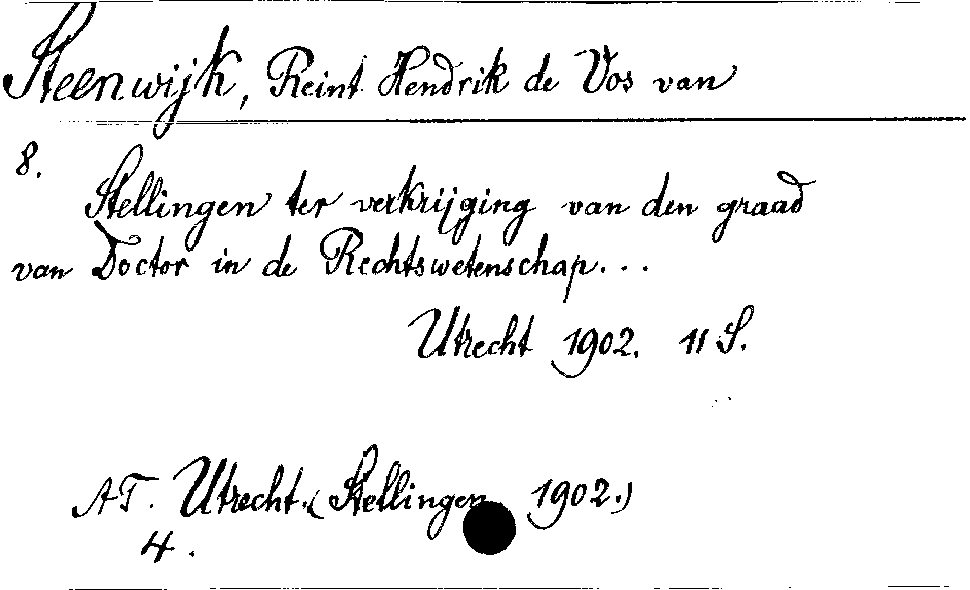 Steenwijk, Reint Hendrik de Vos van
8.
Stellingen ter verkrijging van den graad
van Doctor in de Rechtswetenschap...
Utrecht 1902. 11 S.
AT. Utrecht. (Stellingen 1902.)
4.